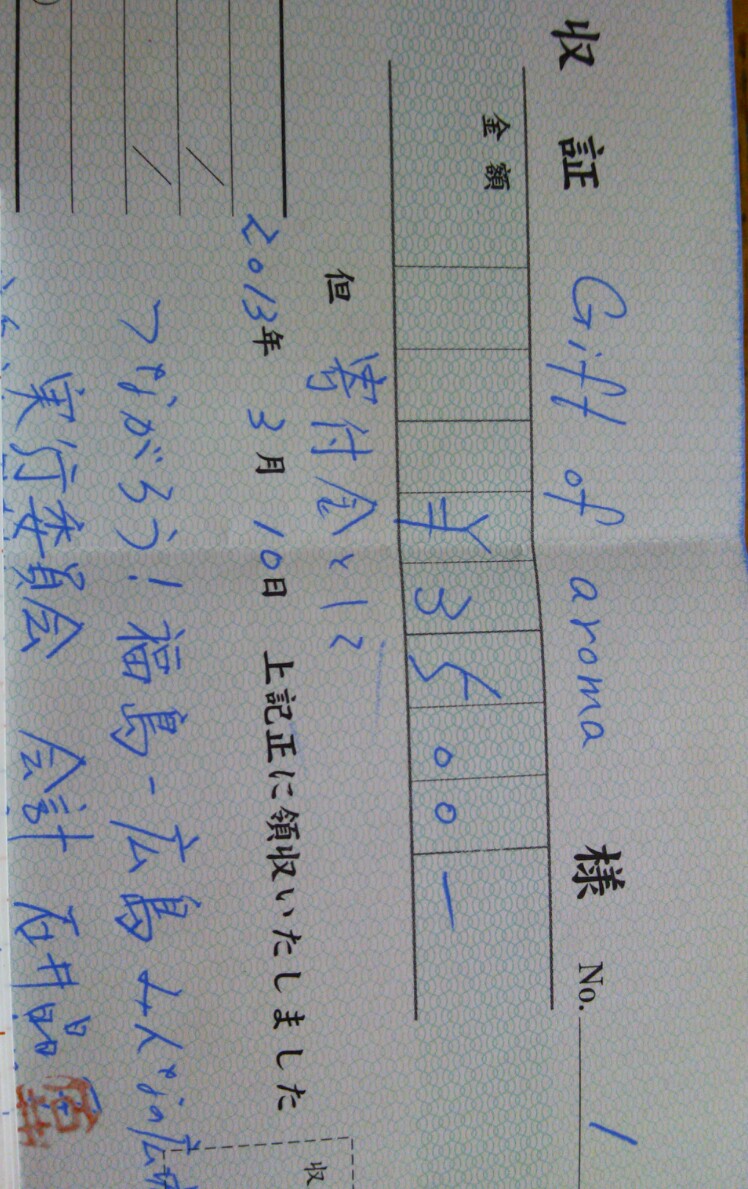 収証 Gift of aroma 様 No. 1
金額 ¥3500-
但 寄付金として
2013年 3月 10日 上記正に領収いたしました
つながろう!福島-広島みんなの広
実行委員会 会計 石井晶
収